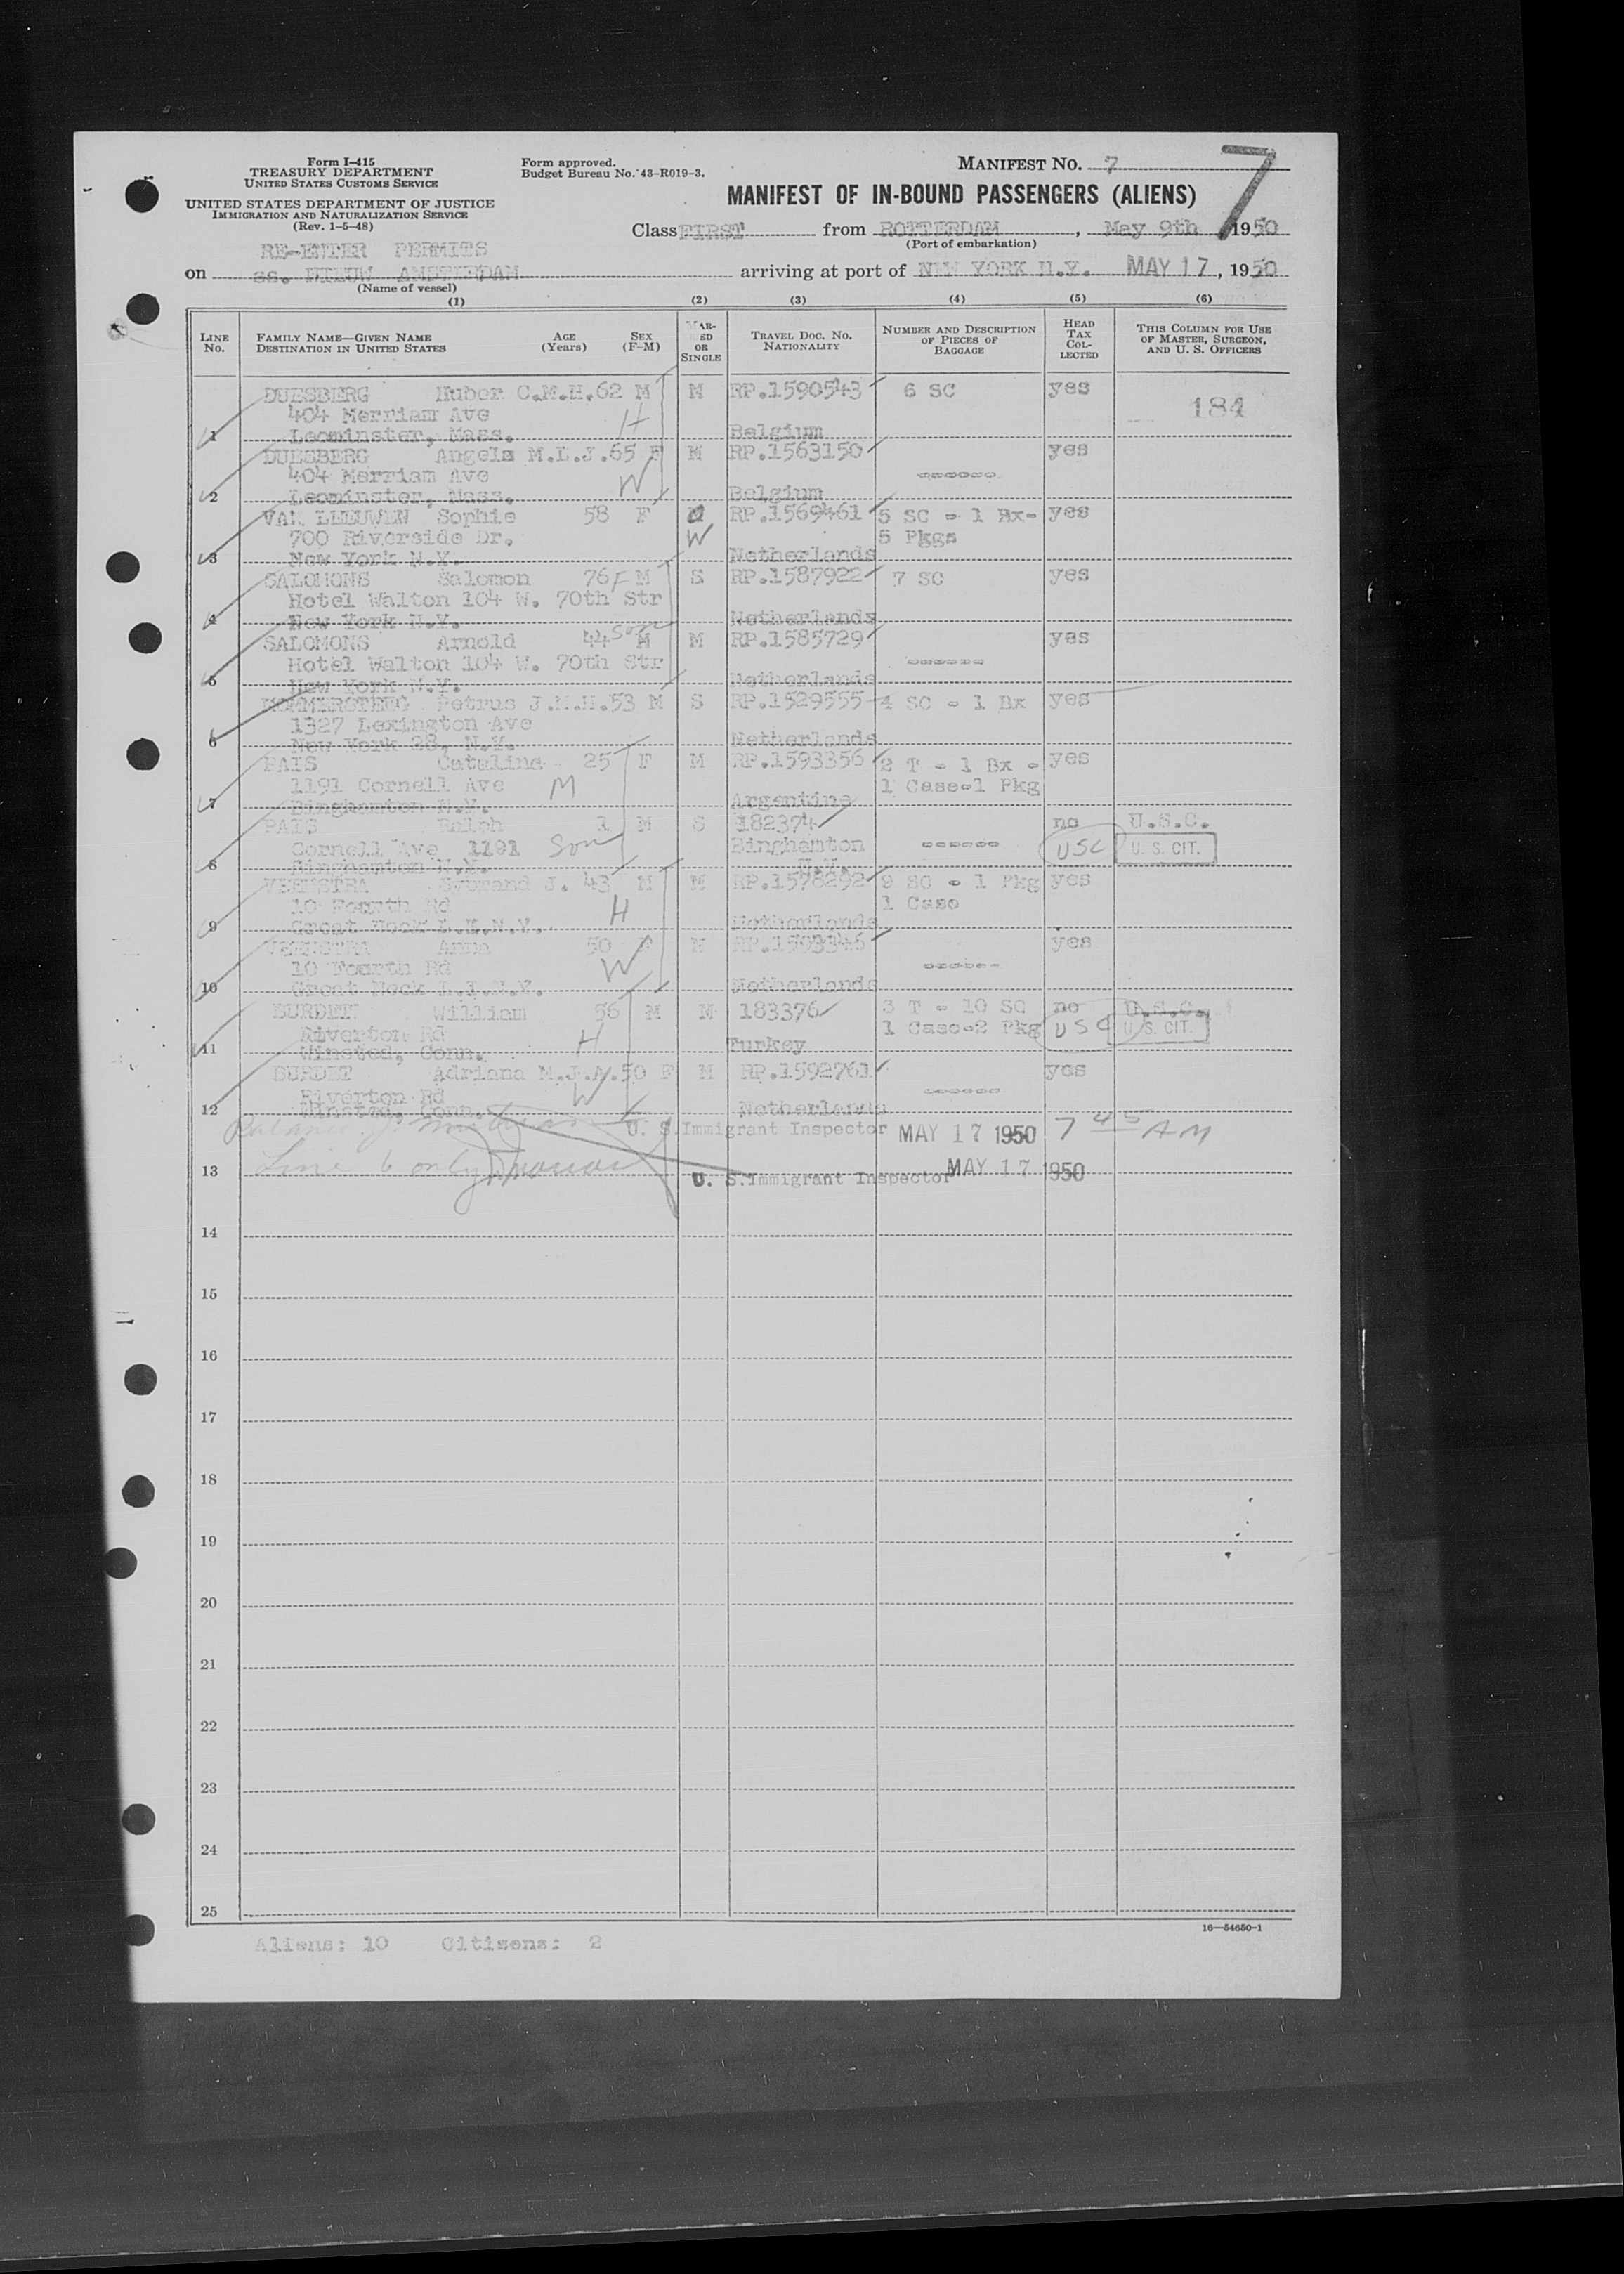 Form I-415
TREASURY DEPARTMENT
UNITED STATES CUSTOMS SERVICE
UNITED STATES DEPARTMENT OF JUSTICE
IMMIGRATION AND NATURALIZATION SERVICE
(Rev. 1-5-48)
Form approved.
Budget Bureau No. 43-R019-3.
MANIFEST NO. 7
7
MANIFEST OF IN-BOUND PASSENGERS (ALIENS)
Class FIRST from ROTTERDAM, May 9th 1950
(Port of embarkation)
RE-ENTER PERMITS
on ss. NIEUW AMSTERDAM arriving at port of NEW YORK N.Y. MAY 17, 1950
(Name of vessel)
(1) (2) (3) (4) (5) (6)
LINE No. FAMILY NAME—GIVEN NAME DESTINATION IN UNITED STATES AGE (Years) SEX (F-M) MAR-ED OR SINGLE TRAVEL DOC. NO. NATIONALITY NUMBER AND DESCRIPTION OF PIECES OF BAGGAGE HEAD TAX COL-LECTED THIS COLUMN FOR USE OF MASTER, SURGEON, AND U. S. OFFICERS
DUESBERG Huber C.M.H. 62 M M RP.1590543 6 SC yes
404 Merriam Ave H 184
1 Leominster, Mass. Belgium
DUESBERG Angela M.L.J. 65 F M RP.1563150 yes
404 Merriam Ave W ------
2 Leominster, Mass. Belgium
VAN LEEUWEN Sophie 58 F RP.1569461 5 SC - 1 Bx- yes
700 Riverside Dr. W 5 Pkgs
3 New York N.Y. Netherlands
SALOMONS Salomon 76 F M S RP.1587922 7 SC yes
Hotel Walton 104 W. 70th Str
4 New York N.Y. Netherlands
SALOMONS Arnold 44 son M M RP.1585729 yes
Hotel Walton 104 W. 70th Str ------
5 New York N.Y. Netherlands
Petrus J.M.H. 53 M S RP.1529555 4 SC - 1 Bx yes
1327 Lexington Ave
6 New York 28, N.Y. Netherlands
PAIS Catalina 25 F M RP.1593356 2 T - 1 Bx - yes
1191 Cornell Ave M 1 Case-1 Pkg
7 Binghamton N.Y. Argentine
PAIS Ralph 1 M S 182374 no U.S.C.
Cornell Ave 1191 Son Binghamton ------ USC U. S. CIT.
8 Binghamton N.Y. N.Y.
VEENSTRA Sybrand J. 43 M M RP.1578292 9 SC - 1 Pkg yes
10 Fourth Rd H 1 Case
9 Great Neck L.I.N.Y. Netherlands
VEENSTRA Anna 50 F M RP.1593346 yes
10 Fourth Rd W ------
10 Great Neck L.I.N.Y. Netherlands
BURDET William 56 M M 183376 3 T - 10 SC no U.S.C.
Riverton Rd H 1 Case-2 Pkg USC U. S. CIT.
11 Winsted, Conn. Turkey
BURDET Adriana M.J.A. 50 F M RP.1592761 yes
Riverton Rd W ------
12 Winsted, Conn. Netherlands
Balance U. S. Immigrant Inspector MAY 17 1950 7 45 AM
13 Line 6 only U. S. Immigrant Inspector MAY 17 1950
14
15
16
17
18
19
20
21
22
23
24
25
16—54650-1
Aliens: 10 Citizens: 2